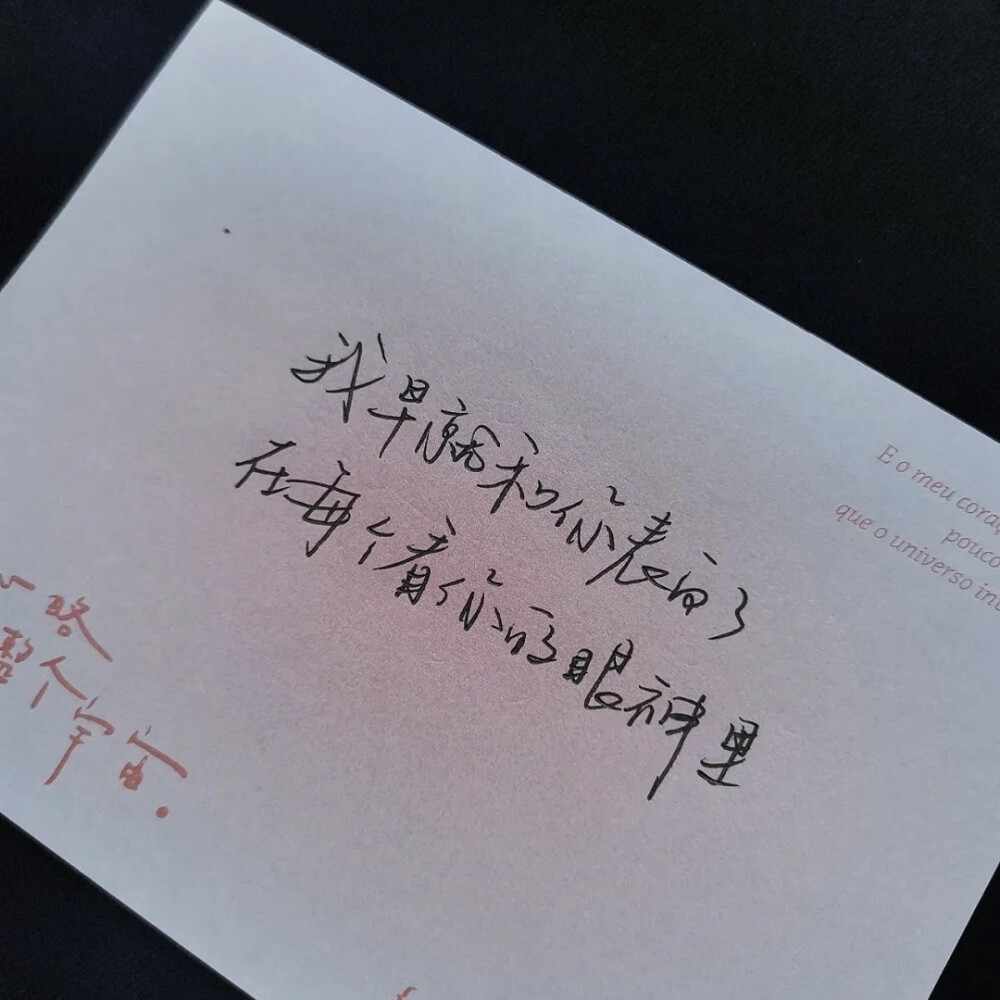 我早就和你表白了
在每个看你的眼神里
E o meu cora
pouco
que o universo in
略
整个
宇宙.